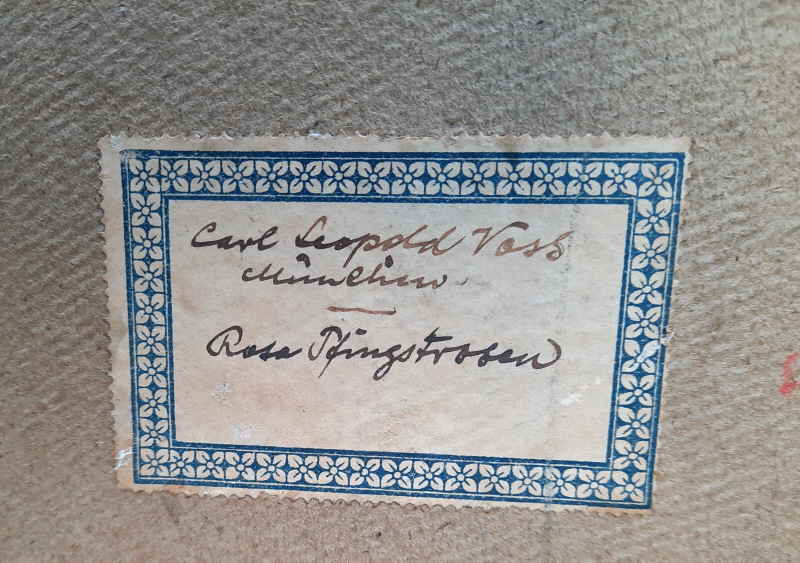 Carl Leopold Voss
München.
Rosa Pfingstrosen